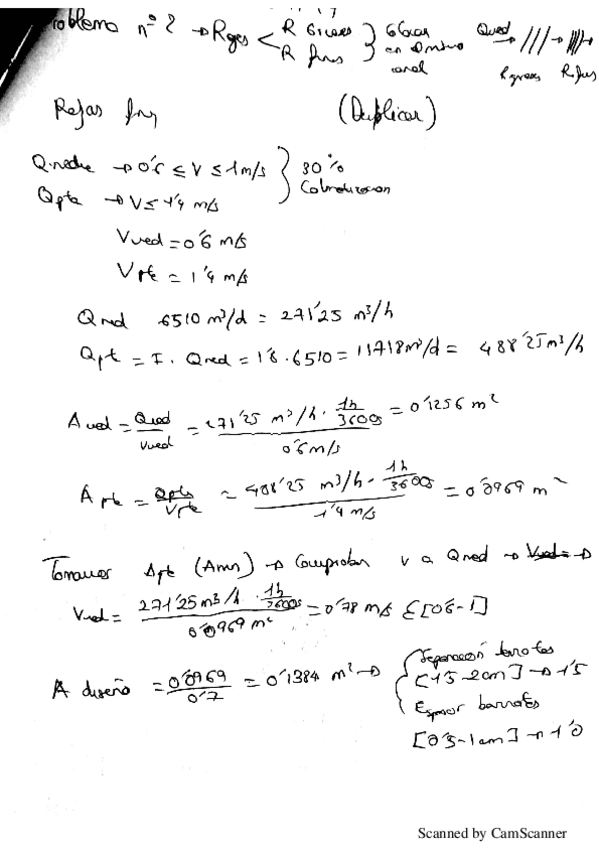 Problema nº 2 → Rejas < R Gruesas R finas } 6 Gcas en mismo canal Qmed → /// → ////
R gruesas R finas
Rejas finas (Duplicar)
Qmedio → 0'6 ≤ V ≤ 1 m/s } 30%
Qpta → V ≤ 1'4 m/s Colmatacion
Vmed = 0'6 m/s
Vpte = 1'4 m/s
Qmed 6510 m³/d = 271'25 m³/h
Qpt = I · Qmed = 1'8 · 6510 = 11718 m³/d = 488'25 m³/h
Amed = Qmed/Vmed = 271'25 m³/h · 1h/3600s / 0'6 m/s = 0'1256 m²
Apte = Qpta/Vpte = 488'25 m³/h · 1h/3600s / 1'4 m/s = 0'0969 m²
Tomamos Apt (Amin) → Comprobar V a Qmed → Vmed = →
Vmed = 271'25 m³/h · 1h/3600s / 0'0969 m² = 0'78 m/s ∈ [0'6-1]
A diseño = 0'0969/0'7 = 0'1384 m² → { Separación barrotes
[1'5-2cm] → 1'5
Espesor barrotes
[0'5-1cm] → 1'0
Scanned by CamScanner